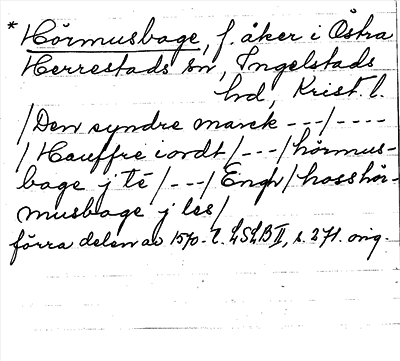 * Hörmusbage, f. åker i Östra
Herrestads sn, Ingelstads
hd, Krist. l.
/Den syndre marck ---/----
/Hauffre iordt/---/hörmus-
bage j té/---/Engh/hosshör-
musbage j les/
förra delen av 1570-t. LSLB II, s. 271. orig.